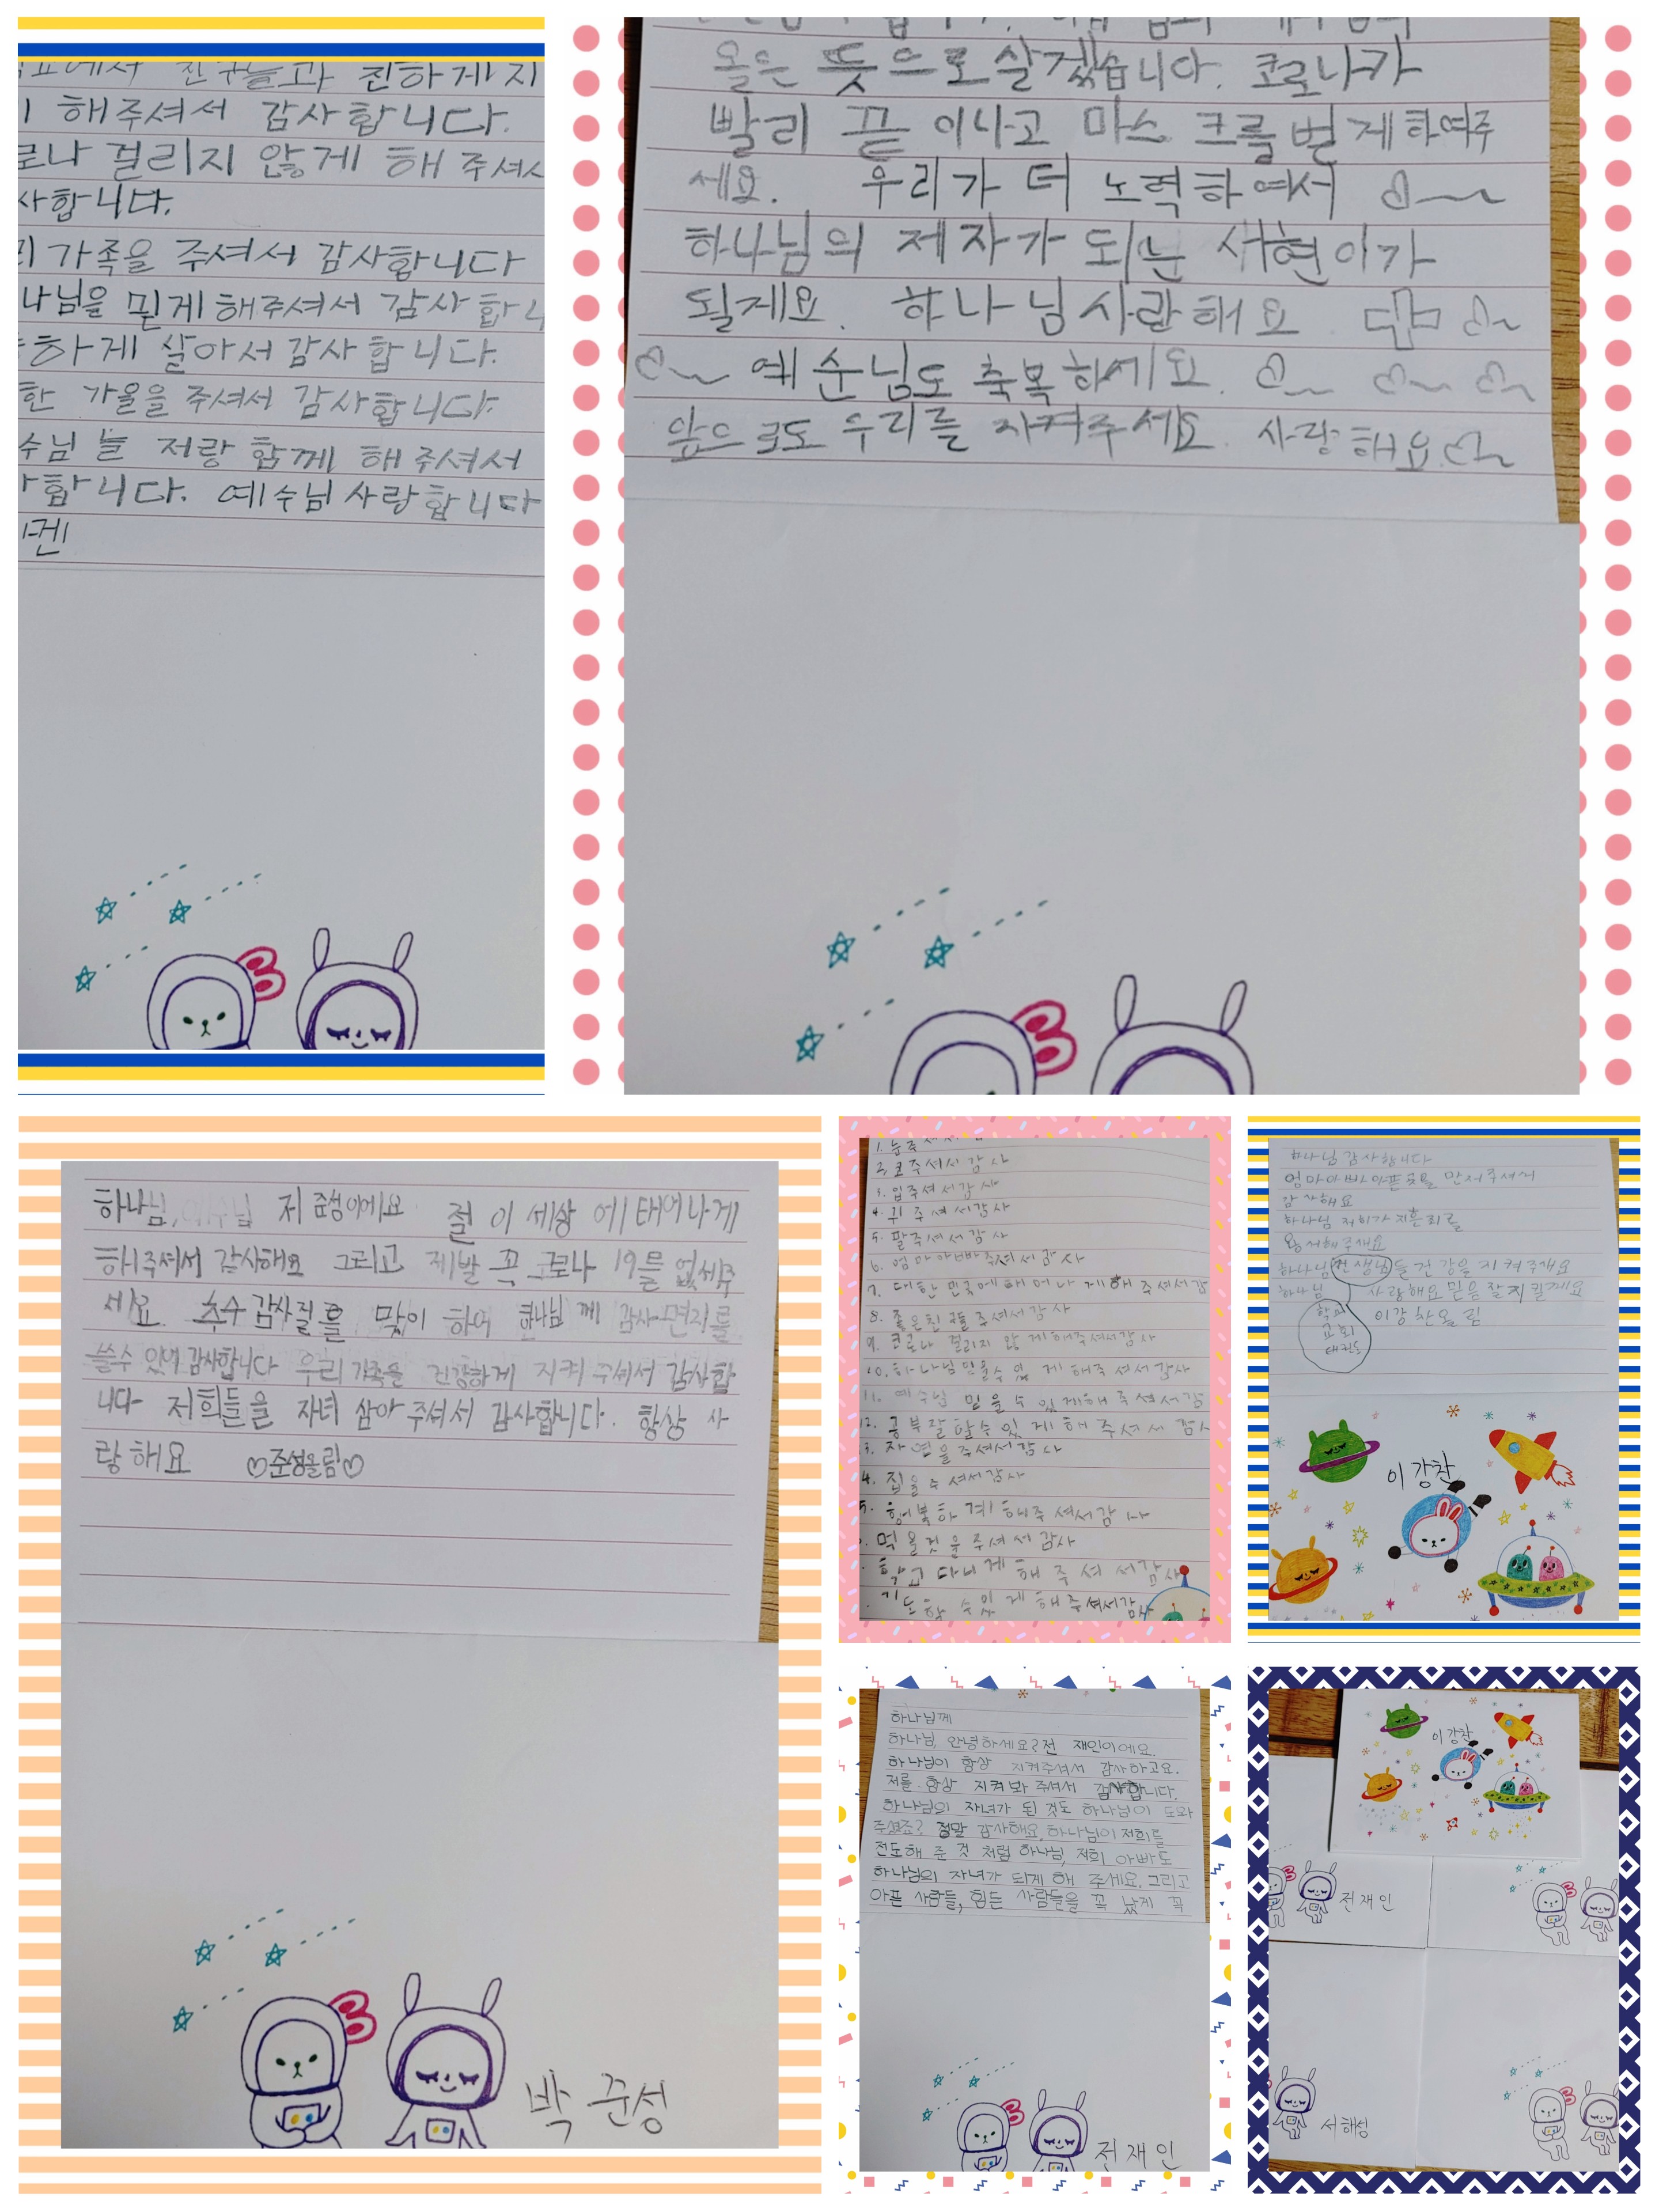 친구들과 친하게 지
해주셔서 감사합니다.
걸리지 않게 해 주셔서
사합니다.
가족을 주셔서 감사합니다
나님을 믿게 해주셔서 감사합니
하게 살아서 감사합니다.
한 가을을 주셔서 감사합니다.
수님 늘 저랑 함께 해 주셔서
합니다. 예수님 사랑합니다
멘
올은 뜻으로 살겠습니다. 코로나가
빨리 끝이나고 마스크를 벋게하여주
세요. 우리가 더 노력하여서
하나님의 제자가 되는 서현이가
될게요. 하나님 사랑해요
예수님도 축복하세요.
앞으로도 우리를 지켜주세요. 사랑해요
하나님, 예수님 저 준성이에요 절 이 세상에 태어나게
해주셔서 감사해요 그리고 제발 꼭 코로나 19를 없애주
세요. 추수감사절를 맞이하여 하나님께 감사편지를
쓸수 있어 감사합니다 우리 가족을 건강하게 지켜 주셔서 감사합
니다 저희들을 자녀 삼아 주셔서 감사합니다. 항상 사
랑해요 ♡준성올림♡
박준성
1. 눈주
2. 코주셔서 감사
3. 입주셔서감사
4. 귀 주셔서감사
5. 팔주셔서감사
6. 엄마아빠주셔서감사
7. 대한민국에태어나게해주셔서감
8. 좋은친구를주셔서감사
9. 코로나 걸리지 않게해주셔서감사
10. 하나님믿을수 있게 해주셔서감사
11. 예수님 믿을 수 있게해 주셔서감
12. 공부잘할수있게 해 주셔서 감사
3. 자연을주셔서감사
4. 집을주셔서감사
5. 행복하게해주셔서감사
먹을것을주셔서감사
학교다니게해주셔서감사
기도할 수있게해주셔서감사
하나님감사합니다
엄마아빠아픈곳을 만져주셔서
감사해요
하나님 저희가 지은죄를
용서해주세요
하나님선생님들건강을 지켜주세요
하나님 사랑해요믿음잘지킬게요
학교 이강찬올림
교회
태권도
이강찬
하나님께
하나님, 안녕하세요? 전 재인이에요.
하나님이 항상 지켜주셔서 감사하고요.
저를 항상 지켜봐 주셔서 감사합니다.
하나님의 자녀가 된 것도 하나님이 도와
주셨죠? 정말 감사해요. 하나님이 저희를
전도해 준 것 처럼 하나님, 저희 아빠도
하나님의 자녀가 되게 해 주세요. 그리고
아픈 사람들, 힘든 사람들을 꼭 낫게 꼭
전재인
이강찬
전재인
서해성